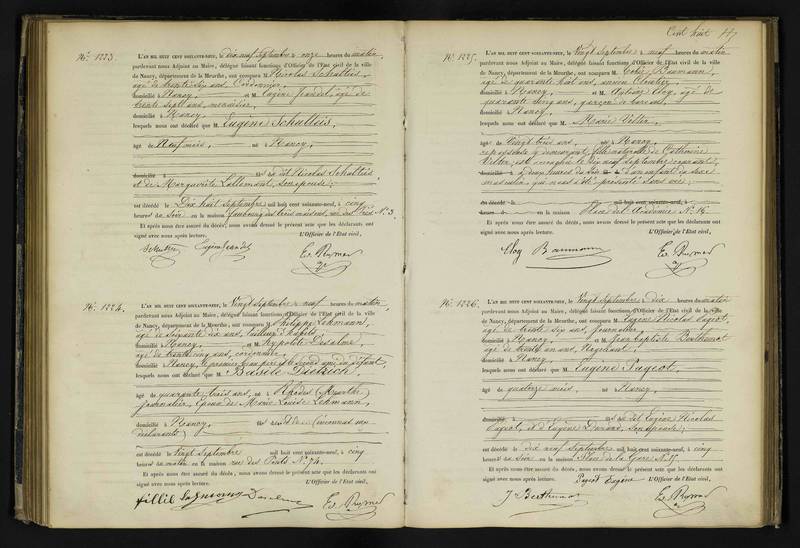 N°. 1223.
L'AN MIL HUIT CENT SOIXANTE-NEUF, le dix neuf Septembre à onze heures du matin,
pardevant nous Adjoint au Maire, délégué faisant fonctions d'Officier de l'Etat civil de la
ville de Nancy, département de la Meurthe, ont comparu M. Nicolas Schulteis,
âgé de trente six ans, Cordonnier,
domicilié à Nancy, et M. Eugène Jeandel, âgé de
trente sept ans, menuisier,
domicilié à Nancy
lesquels nous ont déclaré que M. Eugène Schulteis
âgé de Neuf mois, né à Nancy,
domicilié à
fils de dit Nicolas Schulteis
et de Marguerite Lallemant, son épouse;
est décédé le Dix huit Septembre mil huit cent soixante-neuf, à cinq
heures du soir en la maison faubourg des trois maisons, N°. 3.
Et après nous être assuré du décès, nous avons dressé le présent acte que les déclarants ont
signé avec nous après lecture. L'Officier de l'Etat civil,
Eugène Jeandel
N°. 1224.
L'AN MIL HUIT CENT SOIXANTE-NEUF, le Vingt Septembre à neuf heures du matin,
pardevant nous Adjoint au Maire, délégué faisant fonctions d'Officier de l'Etat civil de la ville
de Nancy, département de la Meurthe, ont comparu M. Philippe Lehmann,
âgé de soixante dix ans, tailleur d'habits,
domicilié à Nancy, et M. hypolite Desalme,
âgé de trente cinq ans, cordonnier,
domicilié à Nancy, le premier beau père et le second ami du défunt,
lesquels nous ont déclaré que M. Basile Dietrich,
âgé de quarante trois ans, né à Rhodes (Meurthe)
journalier, époux de Marie Louise Lehmann,
domicilié à Nancy
déclarants)
est décédé le Vingt Septembre mil huit cent soixante-neuf, à cinq
heures du matin en la maison rue des Ponts N°. 74.
Et après nous être assuré du décès, nous avons dressé le présent acte que les déclarants ont
signé avec nous après lecture. L'Officier de l'Etat civil,
Desalme
Cent huit
N°. 1225.
L'AN MIL HUIT CENT SOIXANTE-NEUF, le Vingt Septembre à neuf heures du matin
pardevant nous Adjoint au Maire, délégué faisant fonctions d'Officier de l'Etat civil de la ville
de Nancy, département de la Meurthe, ont comparu M. Baumann,
âgé de quarante huit ans,
domicilié à Nancy et M. Eloy, âgé de
quarante cinq ans, garçon de bureau,
domicilié à Nancy,
lesquels nous ont déclaré que M. Marie Velter,
âgée de Vingt trois ans, née à Nancy,
y demeurant, fille naturelle de Catherine
Velter, est accouchée le dix neuf septembre courant,
à deux heures du soir d'un enfant du sexe
masculin, qui nous a été présenté sans vie;
mil huit cent soixante-neuf, à
heures en la maison Place de l'Académie N°. 16.
Et après nous être assuré du décès, nous avons dressé le présent acte que les déclarants ont
signé avec nous après lecture. L'Officier de l'Etat civil,
Eloy Baumann
N°. 1226.
L'AN MIL HUIT CENT SOIXANTE-NEUF, le Vingt Septembre à dix heures du matin
pardevant nous Adjoint au Maire, délégué faisant fonctions d'Officier de l'Etat civil de la ville
de Nancy, département de la Meurthe, ont comparu M. Eugène Nicolas Pageot,
âgé de trente six ans, journalier,
domicilié à Nancy et M. Jean Baptiste Berthemot
âgé de trente un ans, Négociant,
domicilié à Nancy,
lesquels nous ont déclaré que M. Eugène Pageot,
âgé de quatorze mois, né à Nancy,
domicilié à fils de dit Eugène Nicolas
Pageot, et d'Eugénie Durand, son épouse;
est décédé le dix neuf Septembre mil huit cent soixante-neuf, à cinq
heures du soir en la maison Place de la Gare
Et après nous être assuré du décès, nous avons dressé le présent acte que les déclarants ont
signé avec nous après lecture. L'Officier de l'Etat civil,
Pageot Eugène